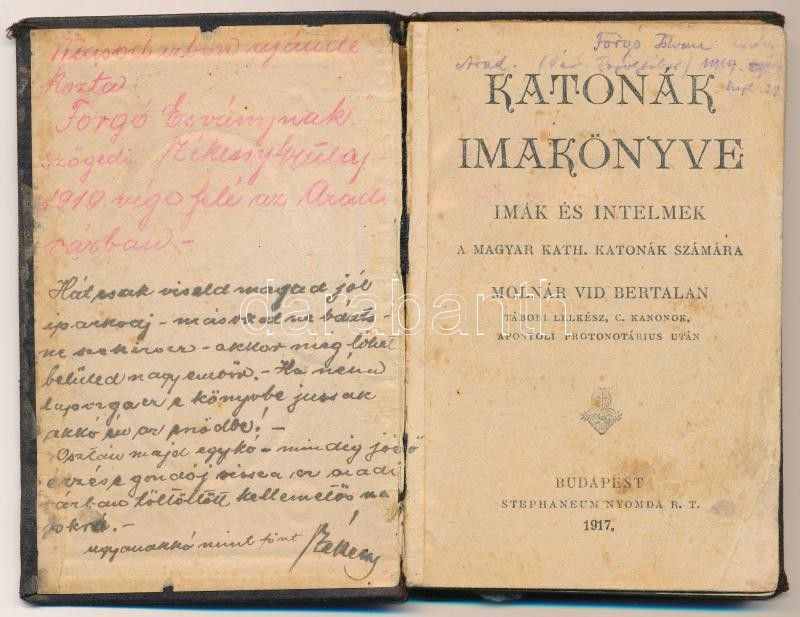 Másodízbön ajándé
kozta
"Forgó Esványnak"
szögedi Székessy Gyula,
1919. vége felé az Aradi
várban.-
Hát csak viseld magad jól
iparkodj - másokat ne bánts -
akkor meg löhet
belüled nagy embör. - Ha néha
e könyvbe jussak
akkó én eszödbe! -
Osztán majd egykó - mindig jóeső
érzése gondój vissza az aradi
várban töltöttt kellemetös na
pokra. -
ugyanakkó mint fönt Székessy
Forgó Istvan
Arad. 1919.
Sept. 28
KATONÁK
IMAKÖNYVE
IMÁK ÉS INTELMEK
A MAGYAR KATH. KATONÁK SZÁMÁRA
MOLNÁR VID BERTALAN
TÁBORI LELKÉSZ, C. KANONOK,
APOSTOLI PROTONOTÁRIUS UTÁN
BUDAPEST
STEPHANEUM NYOMDA R. T.
1917.
darabanth.com